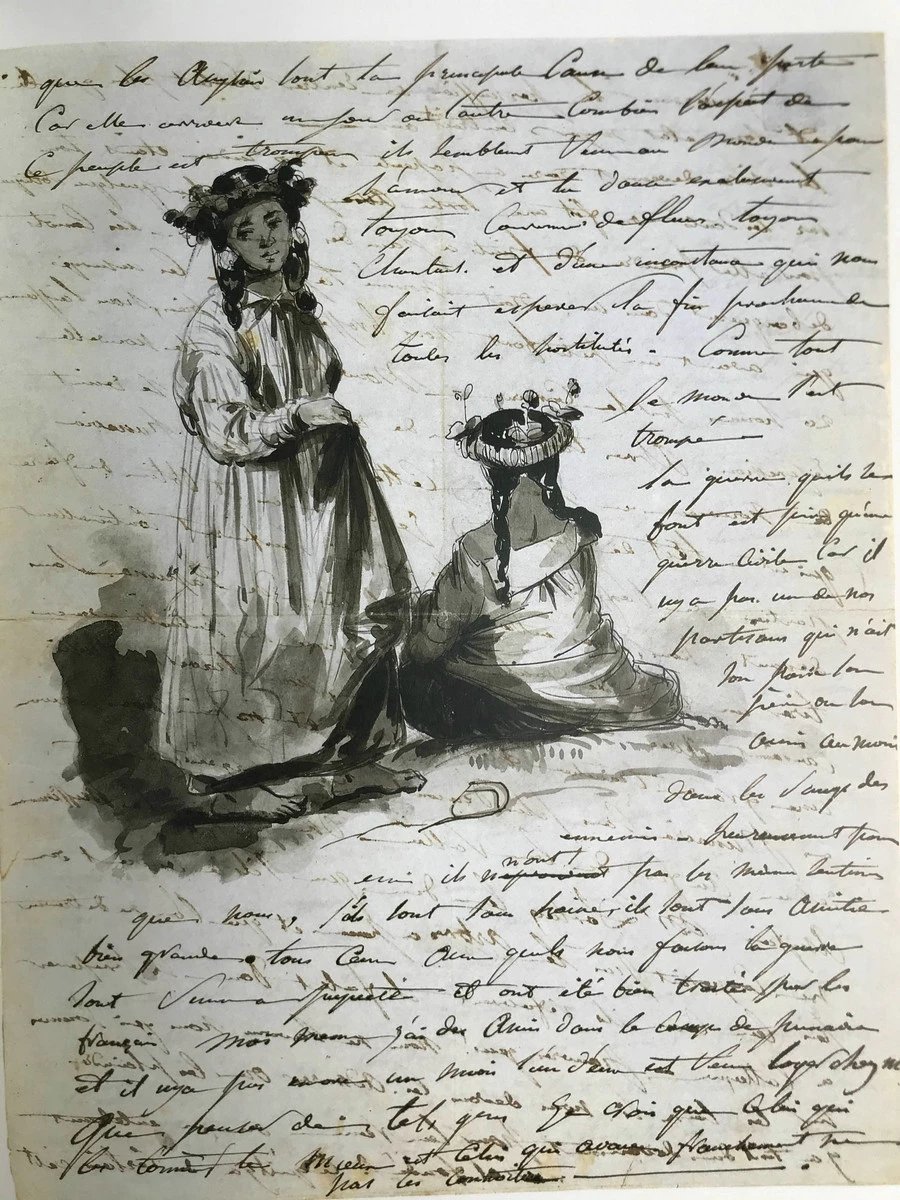 que les Anglais sont la principale Cause de leur perte
Car elle arrivera un jour ou l'autre Combien l'esprit de
Ce peuple est trompeur ils semblent Venu au monde pour
l'amour et la douce
toujours Couronné de fleurs toujours
Chantant et d'une inconstance qui nous
faisait esperer la fin prochaine de
toutes les hostilités. Comme tout
le monde s'est
trompé
la guerre qu'ils se
font est pire qu'une
guerre civile Car il
n'y a pas un de nos
partisans qui n'ait
son père son
frère ou son
amis au moins
dans les rangs des
ennemis. heureusement pour
eux ils n'ont pas les mêmes
que nous, ils sont sans haine, ils sont sans amitié
bien grande. tous Ceux Auxquels nous faisons la guerre
sont Venus a Papeiti et ont été bien traités par les
français Moi meme j'ai des Amis dans le Camp de punavia
et il n'y a pas encore un mois l'un d'eux est Venu loger chez moi
Que penser de tels gens Je crois que Celui qui
les Connait le mieux est Celui qui avoue franchement ne
pas les connaitre